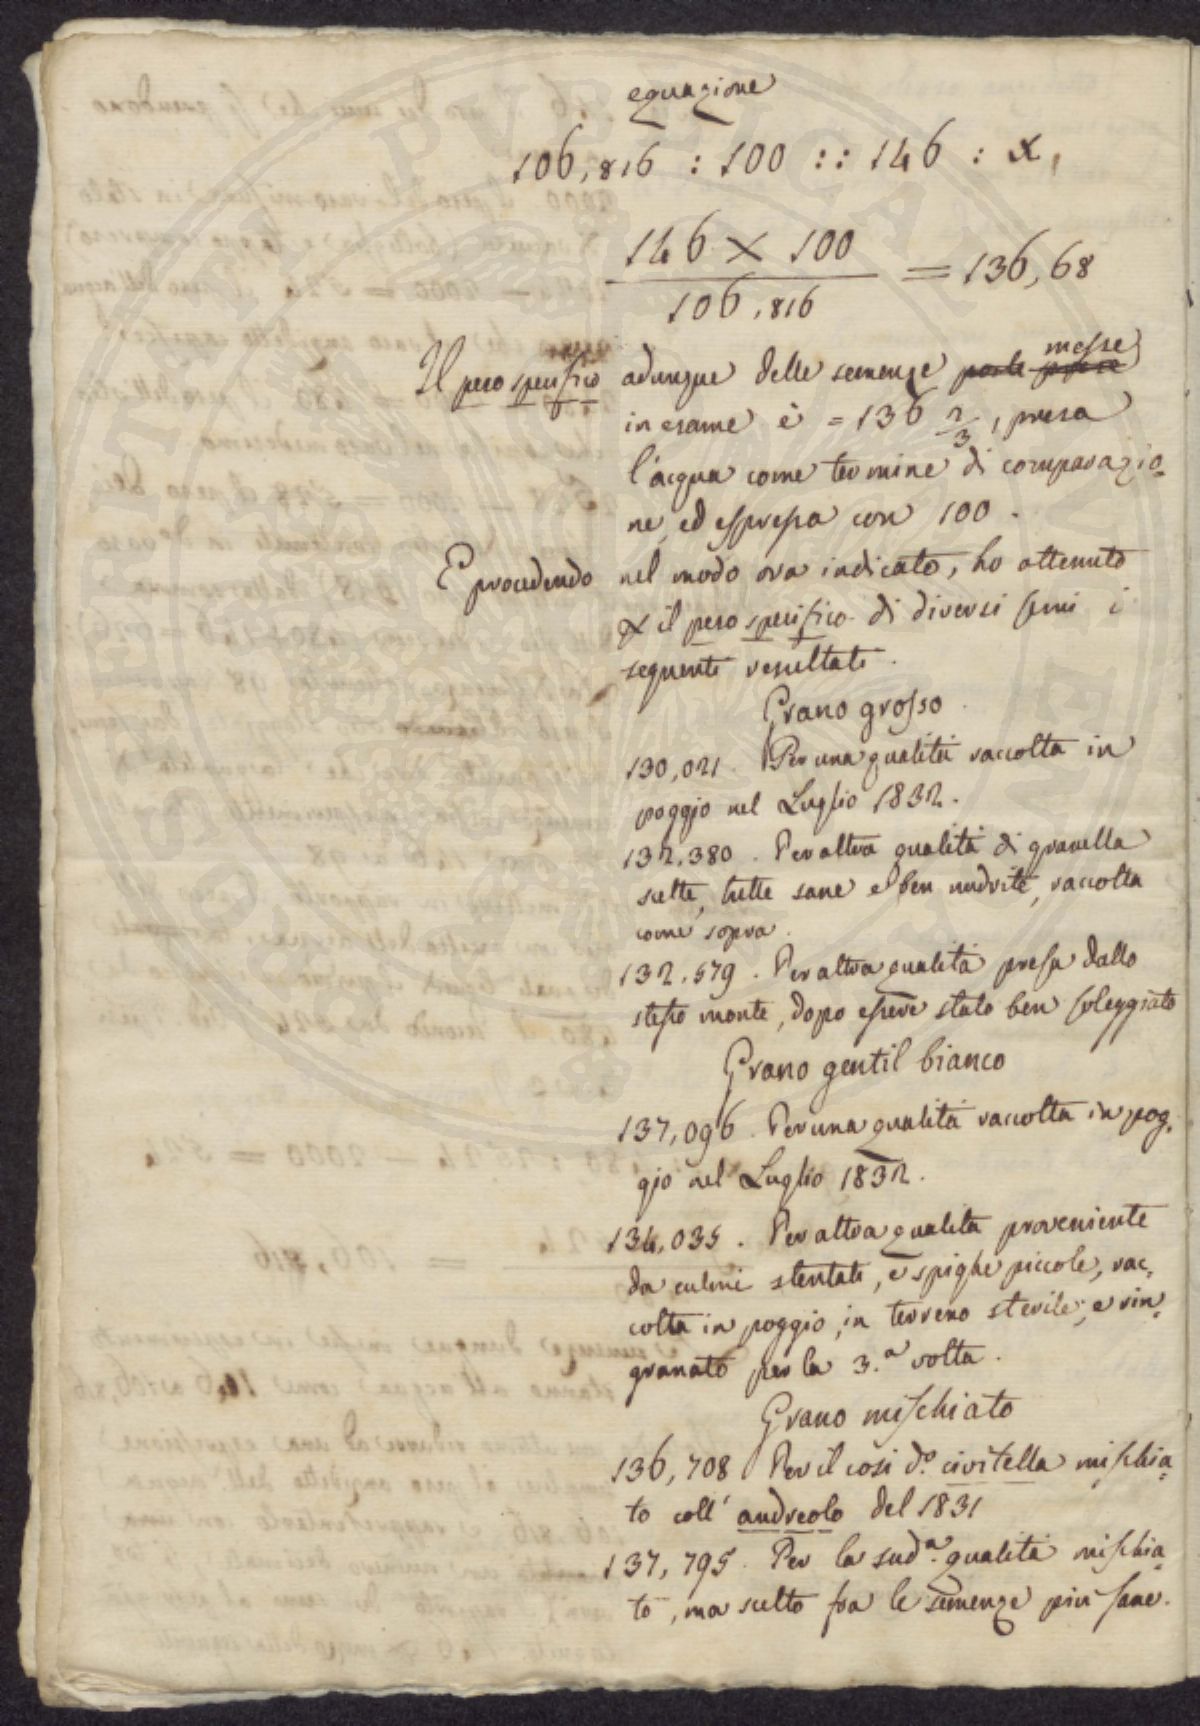 equazione
106,816 : 100 :: 146 : x,
146 × 100
= 136,68
106,816
Il peso specifico adunque delle semenze poste messe
in esame è = 136 2/3, presa
l'acqua come termine di comparazio-
ne, ed espressa con 100.
E procedendo nel modo ora indicato, ho ottenuto
il peso specifico di diversi semi i
seguenti resultati.
Grano grosso
130,021. Per una qualità raccolta in
poggio nel Luglio 1832.
132.380. Per altra qualità di granella
scelte, tutte sane e ben nudrite, raccolta
come sopra.
132.579. Per altra qualità presa dallo
stesso monte, dopo essere stato ben soleggiato
Grano gentil bianco
137,096. Per una qualità raccolta in pog-
gio nel Luglio 1832.
134,035. Per altra qualità proveniente
da culmi stentati, e spighe piccole, rac-
colta in poggio, in terreno sterile, e rin-
granato per la 3.a volta.
Grano mischiato
136,708 Per il cosi d.o civitella mischia-
to coll' andreolo del 1831
137,795. Per la sud.a qualità mischia-
to, ma scelto fra le semenze più sane.